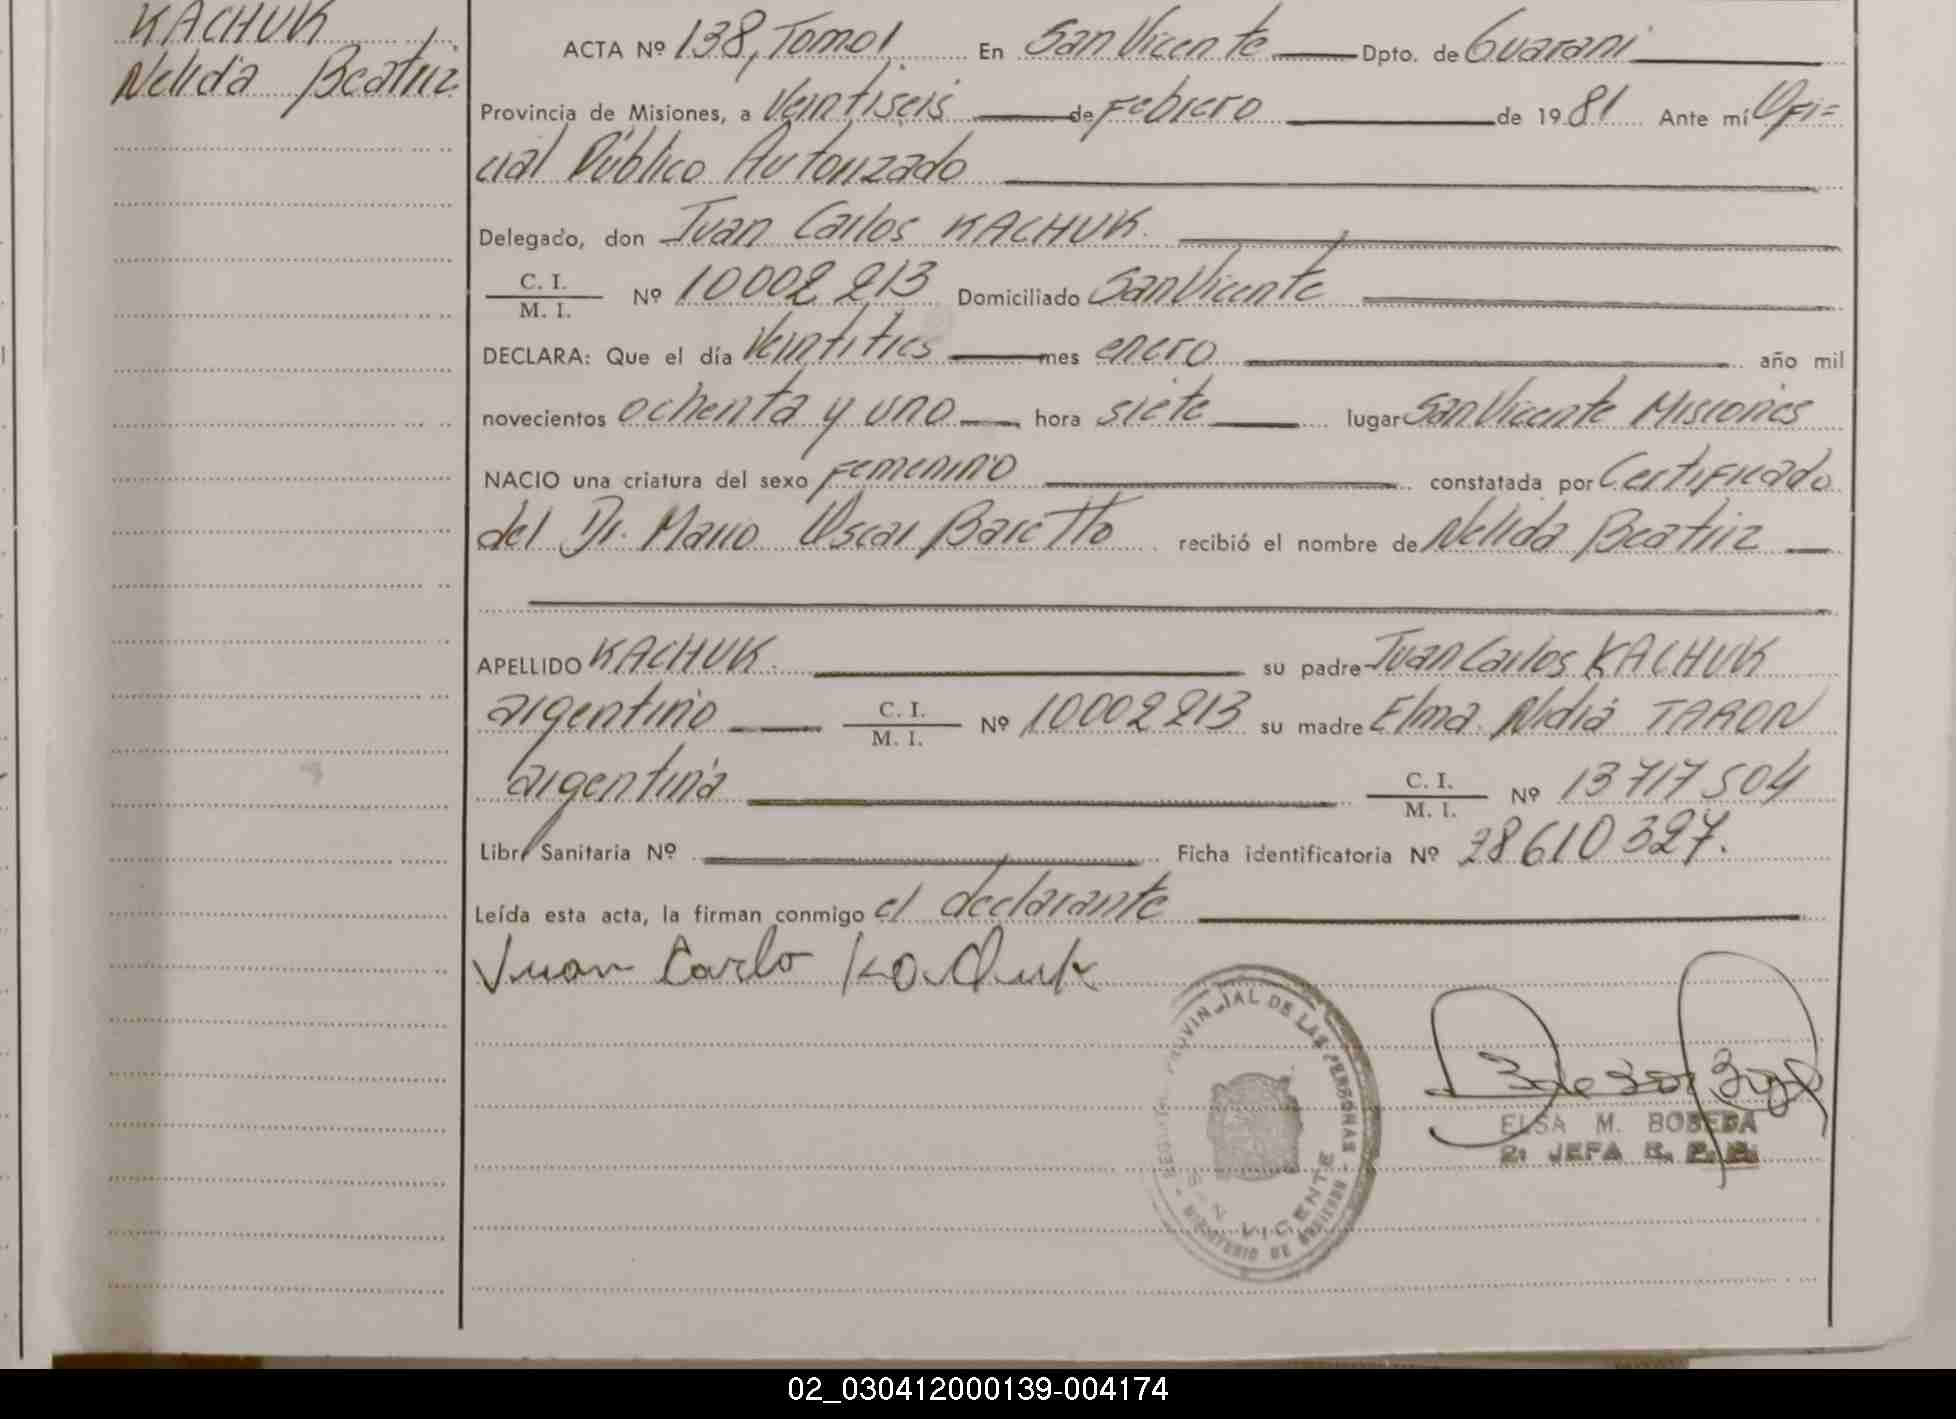 KACHUK
Nelida Beatriz
ACTA Nº 138, Tomo I En San Vicente Dpto. de Guarani
Provincia de Misiones, a Veintiseis de Febrero de 1981 Ante mí Ofi=
cial Público Autorizado
Delegado, don Juan Carlos KACHUK.
C. I.
M. I.
Nº 10002213 Domiciliado San Vicente
DECLARA: Que el día Veintitres mes enero año mil
novecientos ochenta y uno hora siete lugar San Vicente Misiones
NACIO una criatura del sexo Femenino constatada por Certificado
del Dr. Mario Oscar Baretto recibió el nombre de Nelida Beatriz
APELLIDO KACHUK. su padre Juan Carlos KACHUK
argentino C. I.
M. I. Nº 10002213 su madre Elma Nidia TARON
argentina C. I.
M. I. Nº 13717504
Libr Sanitaria Nº Ficha identificatoria Nº 28610327.
Leída esta acta, la firman conmigo el declarante
Juan Carlo Kachuk
PROVINCIAL DE LAS PERSONAS
SAN VICENTE
MINISTERIO DE GOBIERNO
ELSA M. BOBEDA
2: JEFA R. P. P.
02_030412000139-004174